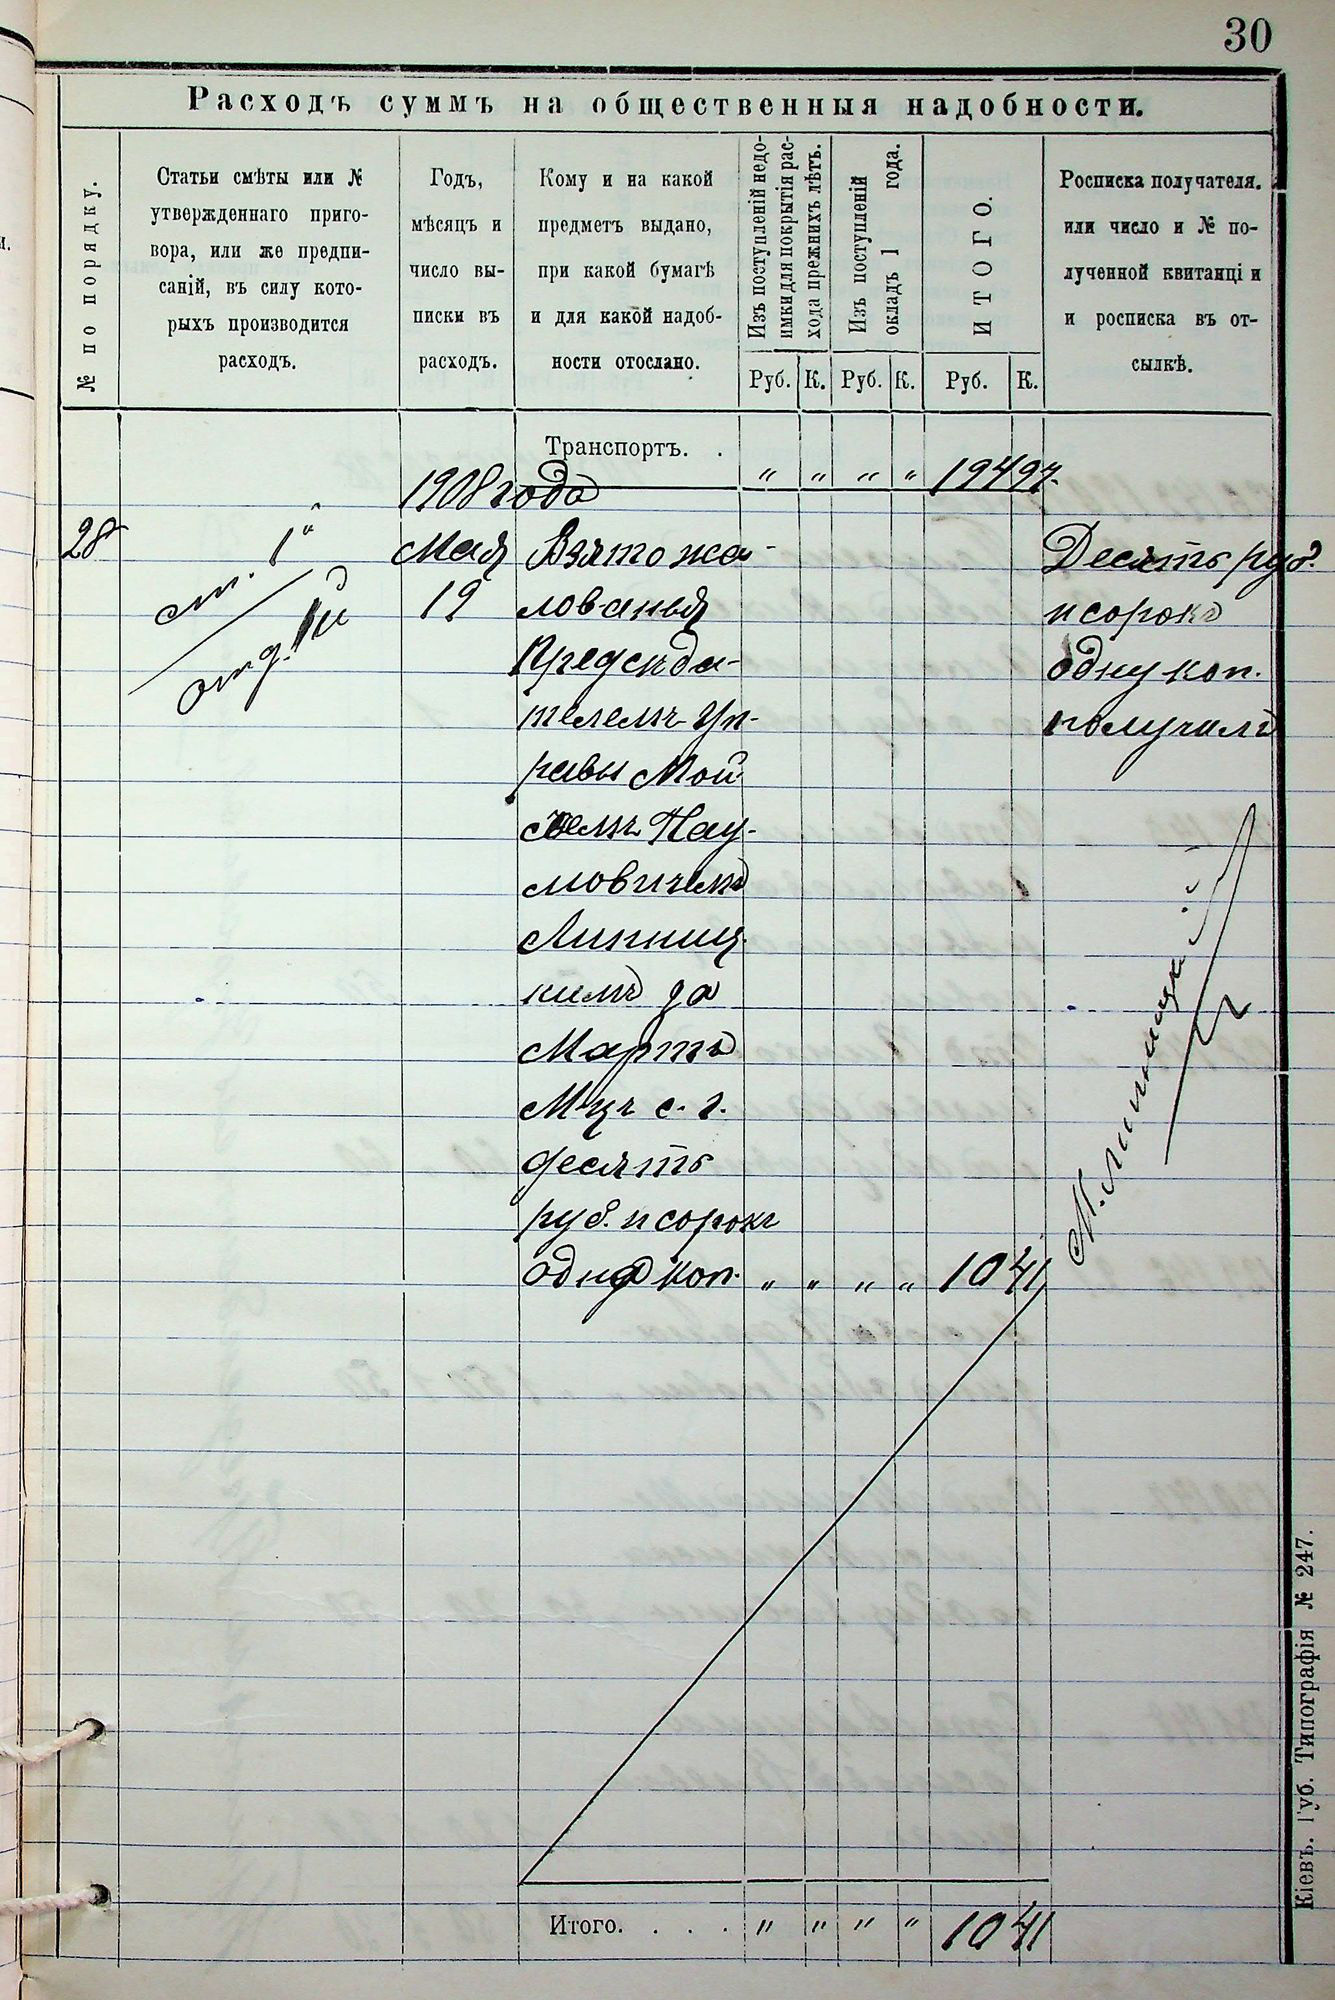 30
Расходъ суммъ на общественныя надобности.
№ по порядку.
Статьи смѣты или №
утвержденнаго приго-
вора, или же предпи-
саній, въ силу кото-
рыхъ производится
расходъ.
Годъ,
мѣсяцъ и
число вы-
писки въ
расходъ.
Кому и на какой
предметъ выдано,
при какой бумагѣ
и для какой надоб-
ности отослано.
Изъ поступленій недо-
имки для покрытія рас-
хода прежнихъ лѣтъ.
Изъ поступленій
окладъ 1 года.
ИТОГО.
Росписка получателя.
или число и № по-
лученной квитанціи
и росписка въ от-
сылкѣ.
Руб. К. Руб. К. Руб. К.
Транспортъ. .
" " " " 194 97.
1908 года
28
ст. 1"
отд. II
Мая
19
Взято жа-
лованья
Предсѣда-
телемъ Уп-
равы Мой-
сѣемъ Нау-
мовичемъ
Липниц-
кимъ за
Мартъ
М-цъ с. г.
десять
руб. и сорокъ
одна коп. " " " " 10 41
Десять руб.
и сорокъ
одну коп.
получилъ
М. Липницкій
Итого. . . . " " " " 10 41
Кіевъ. Губ. Типографія № 247.